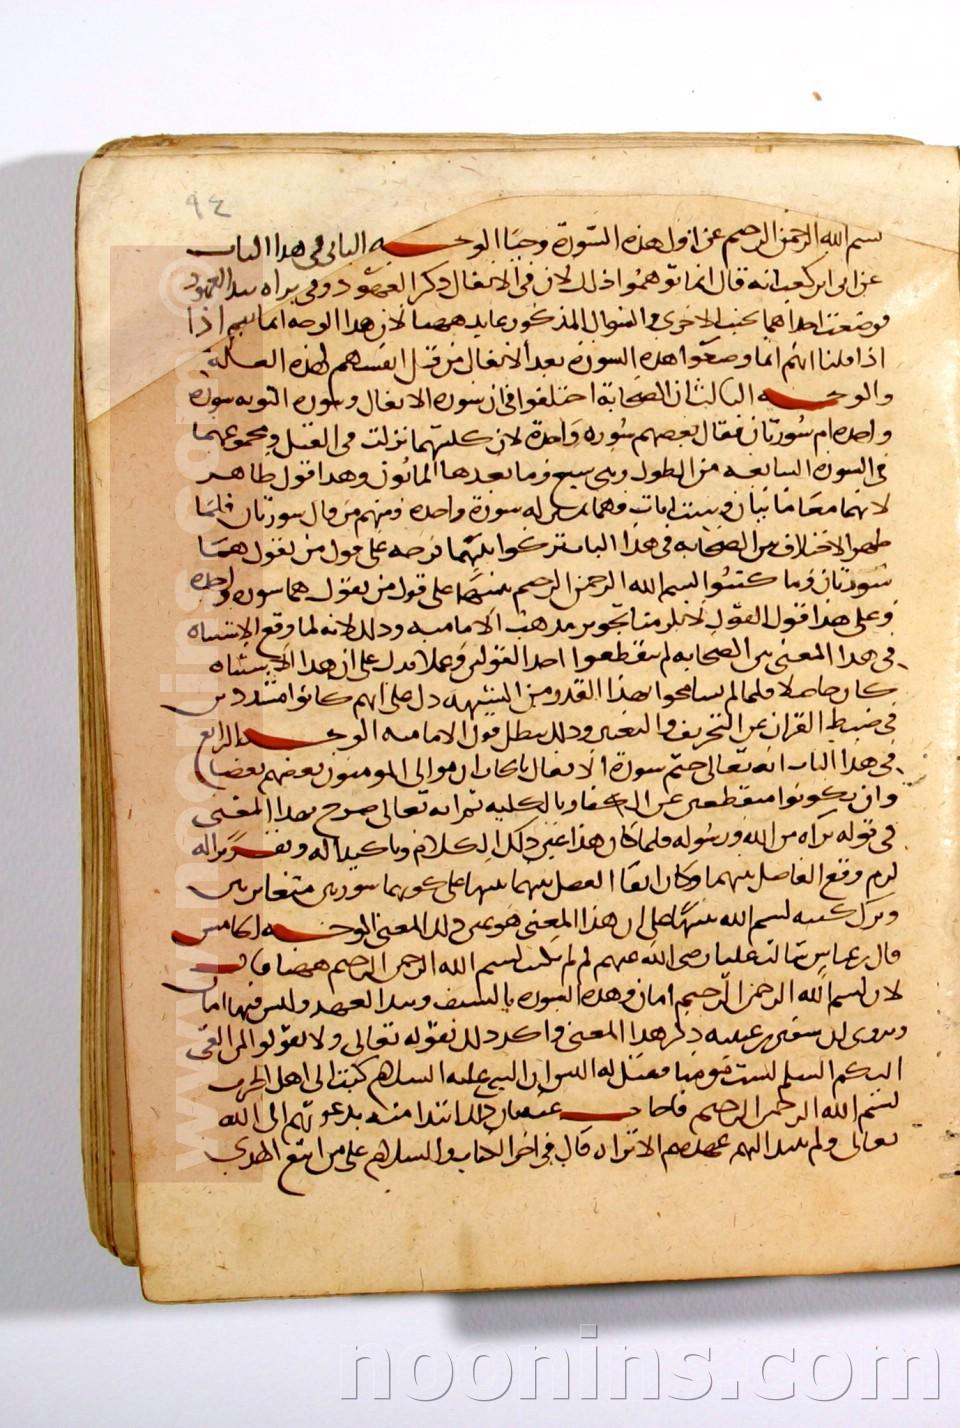 ٩٤
بسم الله الرحمن الرحيم عن اول هذه السورة وحيًا الوجه الثاني في هذا الباب
عن ابي ابن كعب انه قال انما توهموا ذلك لان في الانفال ذكر العهود وفي براه نبذ العهود
فوضعت احداهما بجنب الاخرى والسوال المذكور عايد ههنا لان هذا الوجه انما يتم اذا
اذا قلنا انهم انما وضعوا هذه السورة بعد الانفال من قبل انفسهم لهذه العلة
والوجه الثالث ان الصحابة اختلفوا في ان سورة الانفال وسورة التوبه سورة
واحده ام سورتان فقال بعضهم سوره واحدة لان كلتيهما نزلت في القتل ومجموعهما
في السورة السابعه من الطول وهي سبع وما بعدها المائون وهذا قول ظاهر
لانهما معا مائتان وست ايات فهما بمنزله سورة واحده ومنهم من قال سورتان فلما
ظهر الاختلاف من الصحابه في هذا الباب تركوا بينهما فرجه على قول من يقول هما
سورتان وما كتبوا بسم الله الرحمن الرحيم بينهما على قول من يقول هما سوره واحده
وعلى هذا قول القول لا يلزمنا تجويز مذهب الامامية وذلك لانه لما وقع الاشتباه
في هذا المعنى بين الصحابه لم يقطعوا احد القولين وعملا يدل على ان هذا الاشتباه
كان حاصلا فلما لم يسامحوا بهذا القدر من الشبهه دل على انهم كانوا مشددين
في ضبط القران عن التحريف والتغيير وذلك يبطل قول الامامية الوجه الرابع
في هذا الباب انه تعالى ختم سورة الانفال بايجاب ان يوالي المومنون بعضهم بعضا
وان يكونوا منقطعين عن الكفار بالكليه ثم انه تعالى صرح بهذا المعنى
في قوله براه من الله ورسوله فلما كان هذا عين ذلك الكلام وتاكيدا له وتقريرا له
لزم وقوع الفاصل بينهما وكان ايقاع الفصل بينهما تنبيها على كونهما سورتين متغايرتين
وترك كتبه بسم الله بينهما على ان هذا المعنى هو عين ذلك المعنى الوجه الخامس
قال بن عباس سالت عليا رضى الله عنهم لم لم يكتب بسم الله الرحمن الرحيم ههنا قال
لان بسم الله الرحمن الرحيم امان وهذه السورة بالسيف ونبذ العهد وليس فيها امان
ويروى ان سفين بن عيينه ذكر هذا المعنى واكد ذلك بقوله تعالى ولا تقولوا لمن القى
اليكم السلم لست مومنا فقيل له اليس ان النبي عليه السلام كتب الى اهل الحرب
بسم الله الرحمن الرحيم فاجاب عنه بان ذلك ابتدا منه يدعوهم الى الله
تعالى ولم ينبذ اليهم عهدهم الا تراه قال في اخر الكتاب والسلام على من اتبع الهدى
www.noonins.com
noonins.com